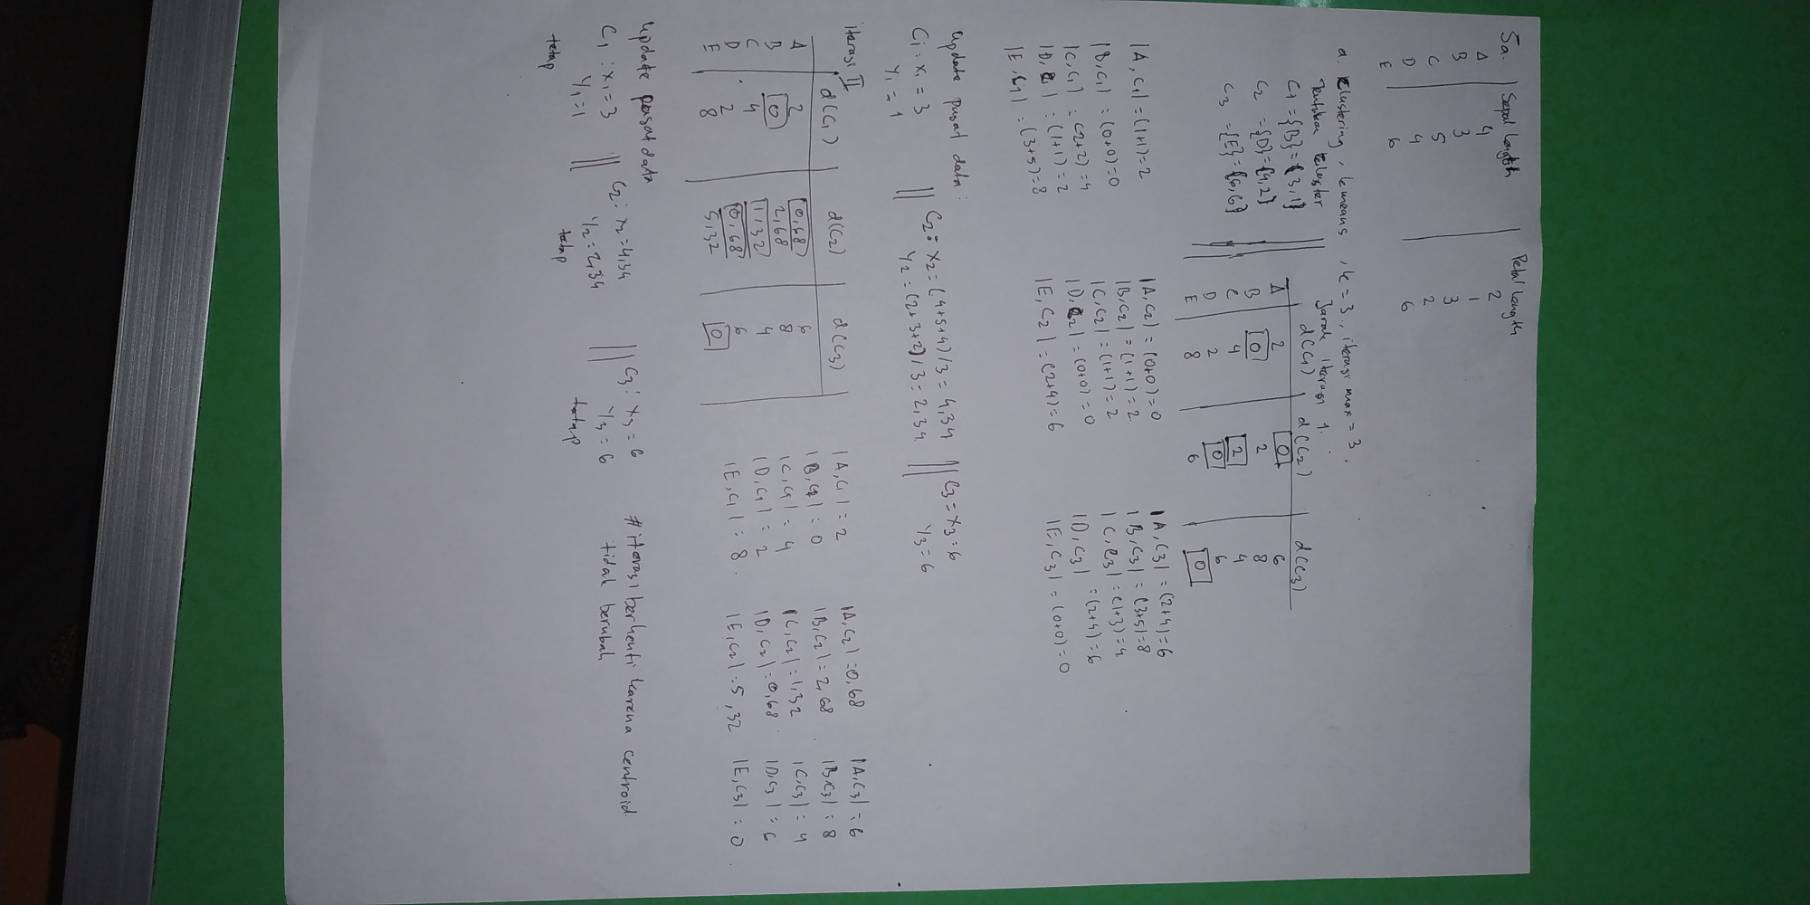 5a. | Sepal Length | Petal Length
A 4 2
B 3 1
C 5 3
D 4 2
E 6 6
a. Clustering, k means, k = 3., iterasi max = 3.
Tentukan Cluster
C1 = {B} = {3,1}
C2 = {D} = {4,2}
C3 = {E} = {6,6}
Jarak Iterasi 1.
d(C1) d(C2) d(C3)
A 2 0 6
B 0 2 8
C 4 2 4
D 2 0 6
E 8 6 0
|A, C1| = (1+1) = 2
|B, C1| = (0+0) = 0
|C, C1| = (2+2) = 4
|D, C1| = (1+1) = 2
|E, C1| = (3+5) = 8
|A, C2| = (0+0) = 0
|B, C2| = (1+1) = 2
|C, C2| = (1+1) = 2
|D, C2| = (0+0) = 0
|E, C2| = (2+4) = 6
|A, C3| = (2+4) = 6
|B, C3| = (3+5) = 8
|C, C3| = (1+3) = 4
|D, C3| = (2+4) = 6
|E, C3| = (0+0) = 0
Update pusat data :
C1 : x1 = 3
y1 = 1
C2 = x2 = (4+5+4) / 3 = 4,34
y2 = (2+3+2) / 3 = 2,34
C3 = x3 = 6
y3 = 6
iterasi II
d(C1) d(C2) d(C3)
A 2 0,68 6
B 0 2,68 8
C 4 1,32 4
D 2 0,68 6
E 8 5,32 0
|A, C1| = 2
|B, C1| = 0
|C, C1| = 4
|D, C1| = 2
|E, C1| = 8
|A, C2| = 0,68
|B, C2| = 2,68
|C, C2| = 1,32
|D, C2| = 0,68
|E, C2| = 5,32
|A, C3| = 6
|B, C3| = 8
|C, C3| = 4
|D, C3| = 6
|E, C3| = 0
Update pusat data
C1 : x1 = 3
y1 = 1
tetap
C2 : x2 = 4,34
y2 = 2,34
tetap
C3 : x3 = 6
y3 = 6
tetap
# iterasi berhenti karena centroid
tidak berubah